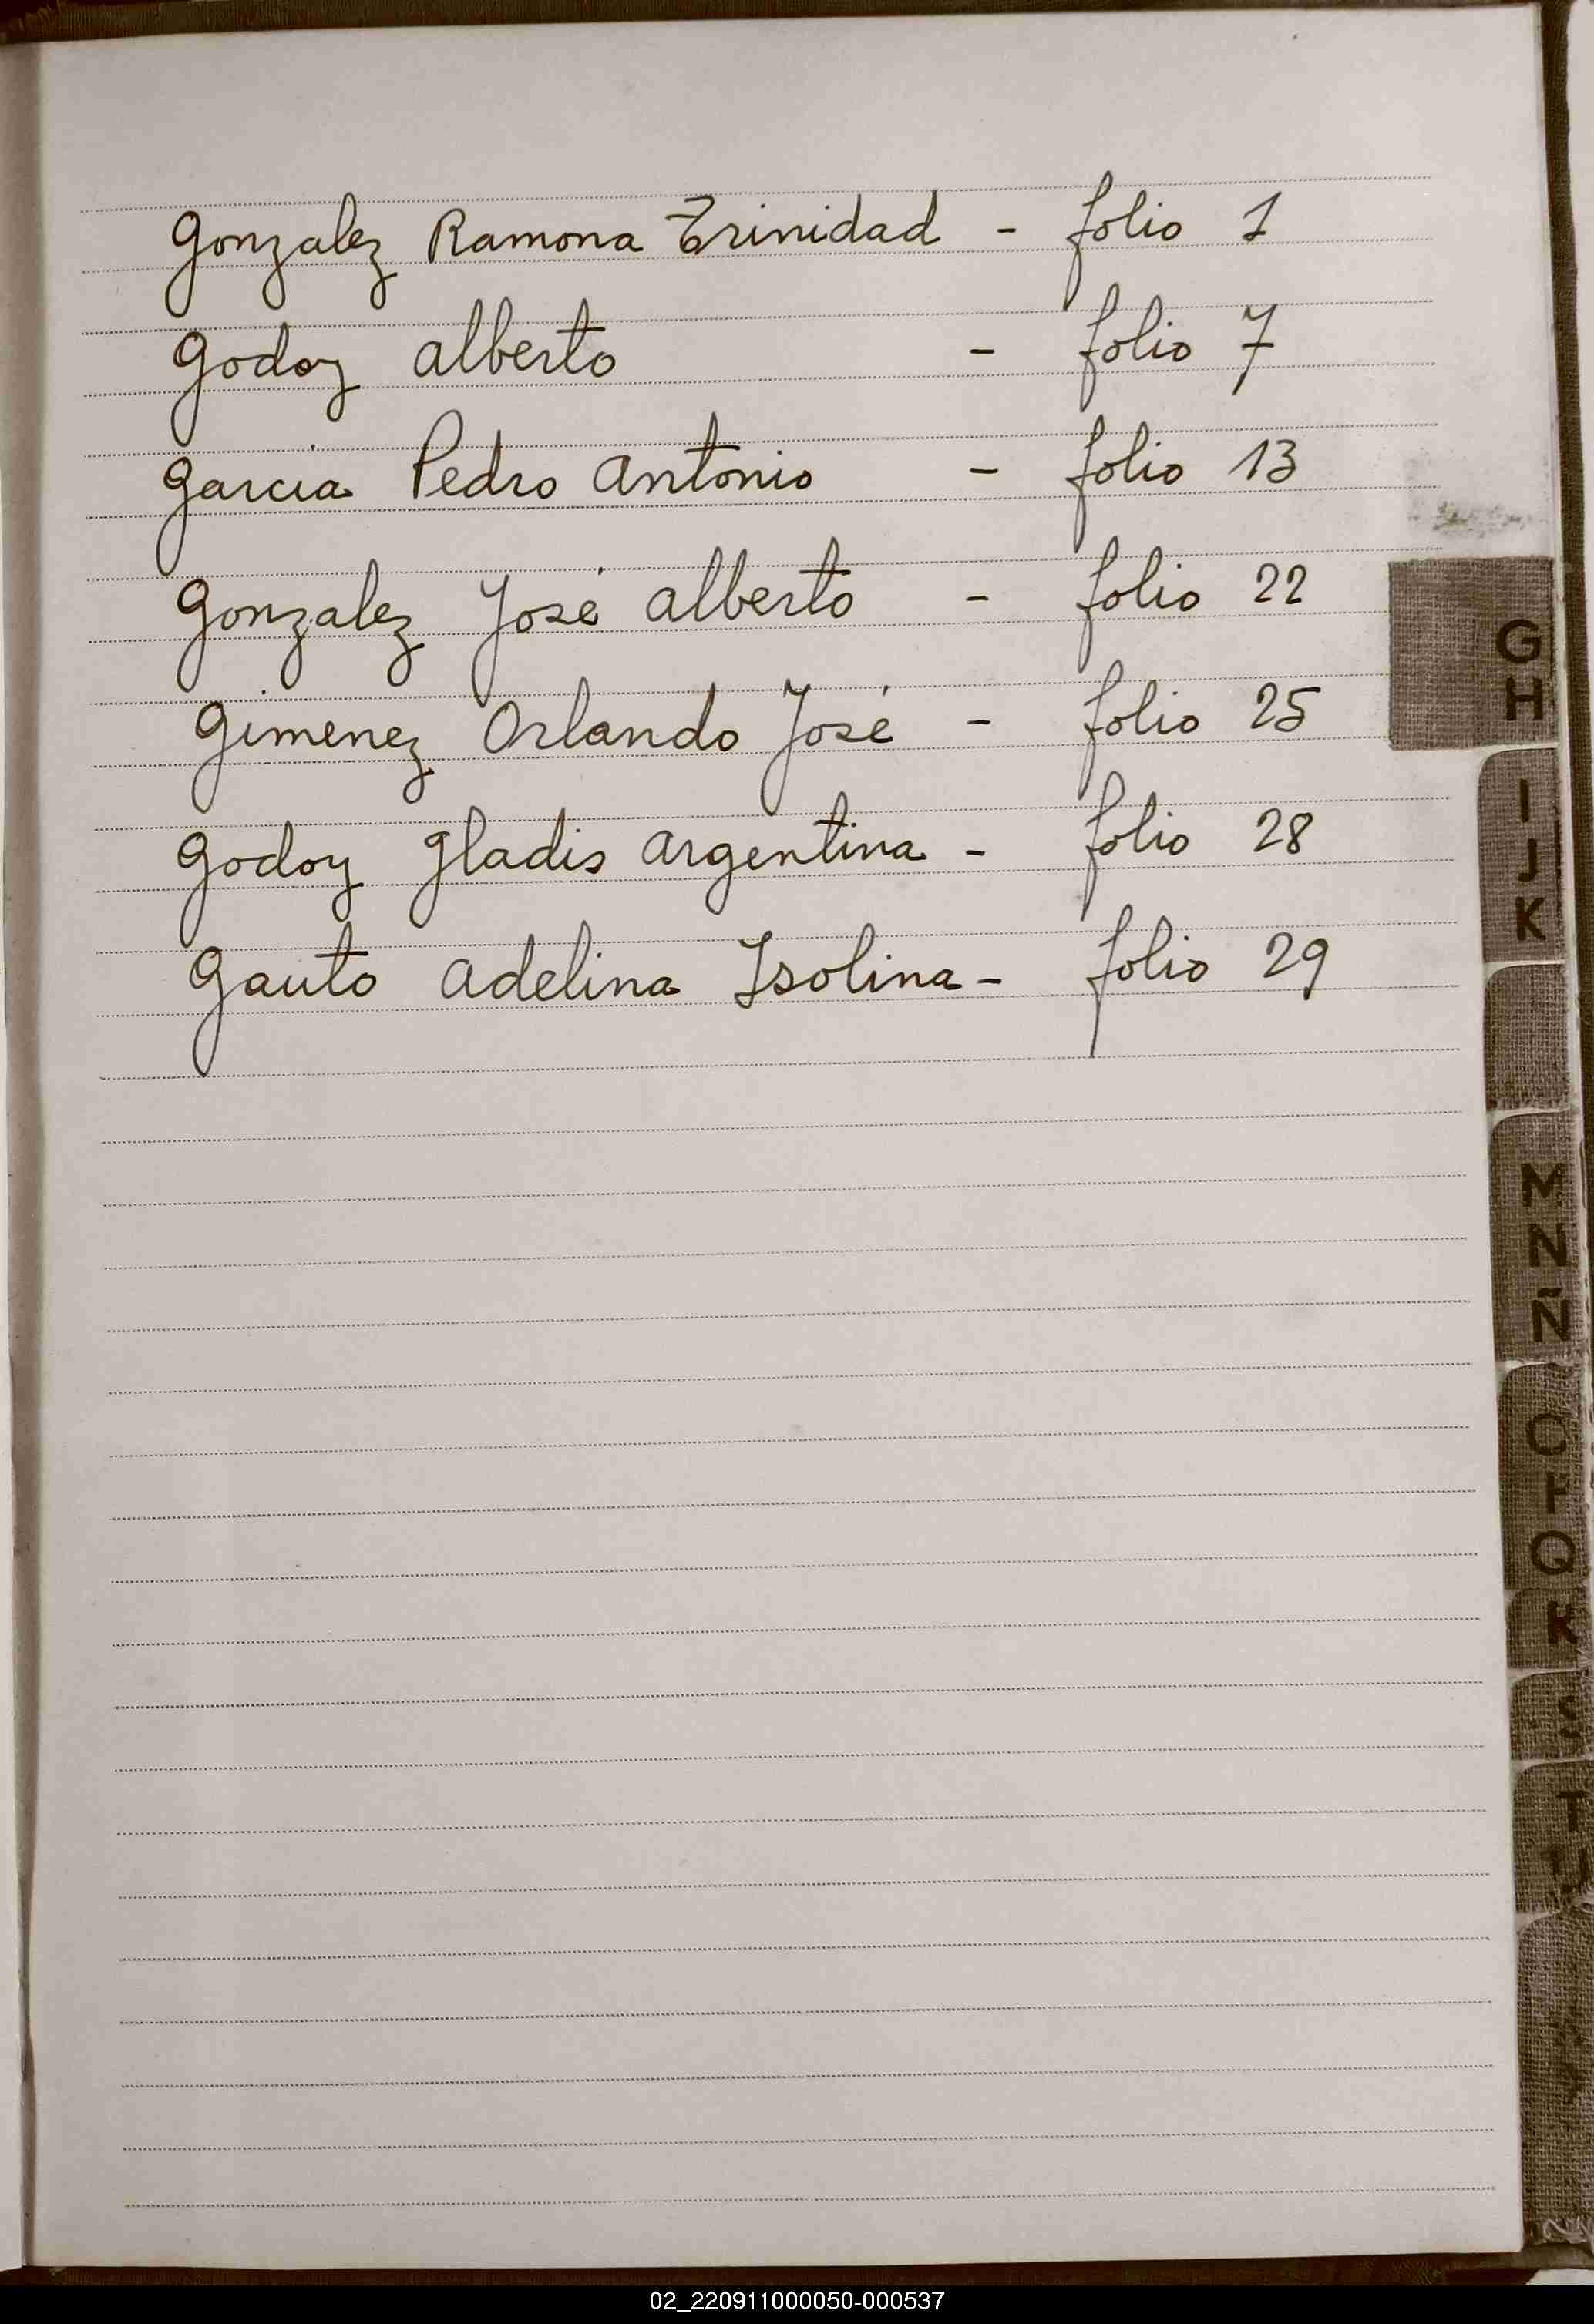 Gonzalez Ramona Trinidad - folio 1
Godoy Alberto - folio 7
Garcia Pedro Antonio - folio 13
Gonzalez José Alberto - folio 22
Gimenez Orlando José - folio 25
Godoy Gladis Argentina - folio 28
Gauto Adelina Isolina - folio 29
G
H
I
J
K
M
N
Ñ
O
Q
R
S
T
U
02_220911000050-000537